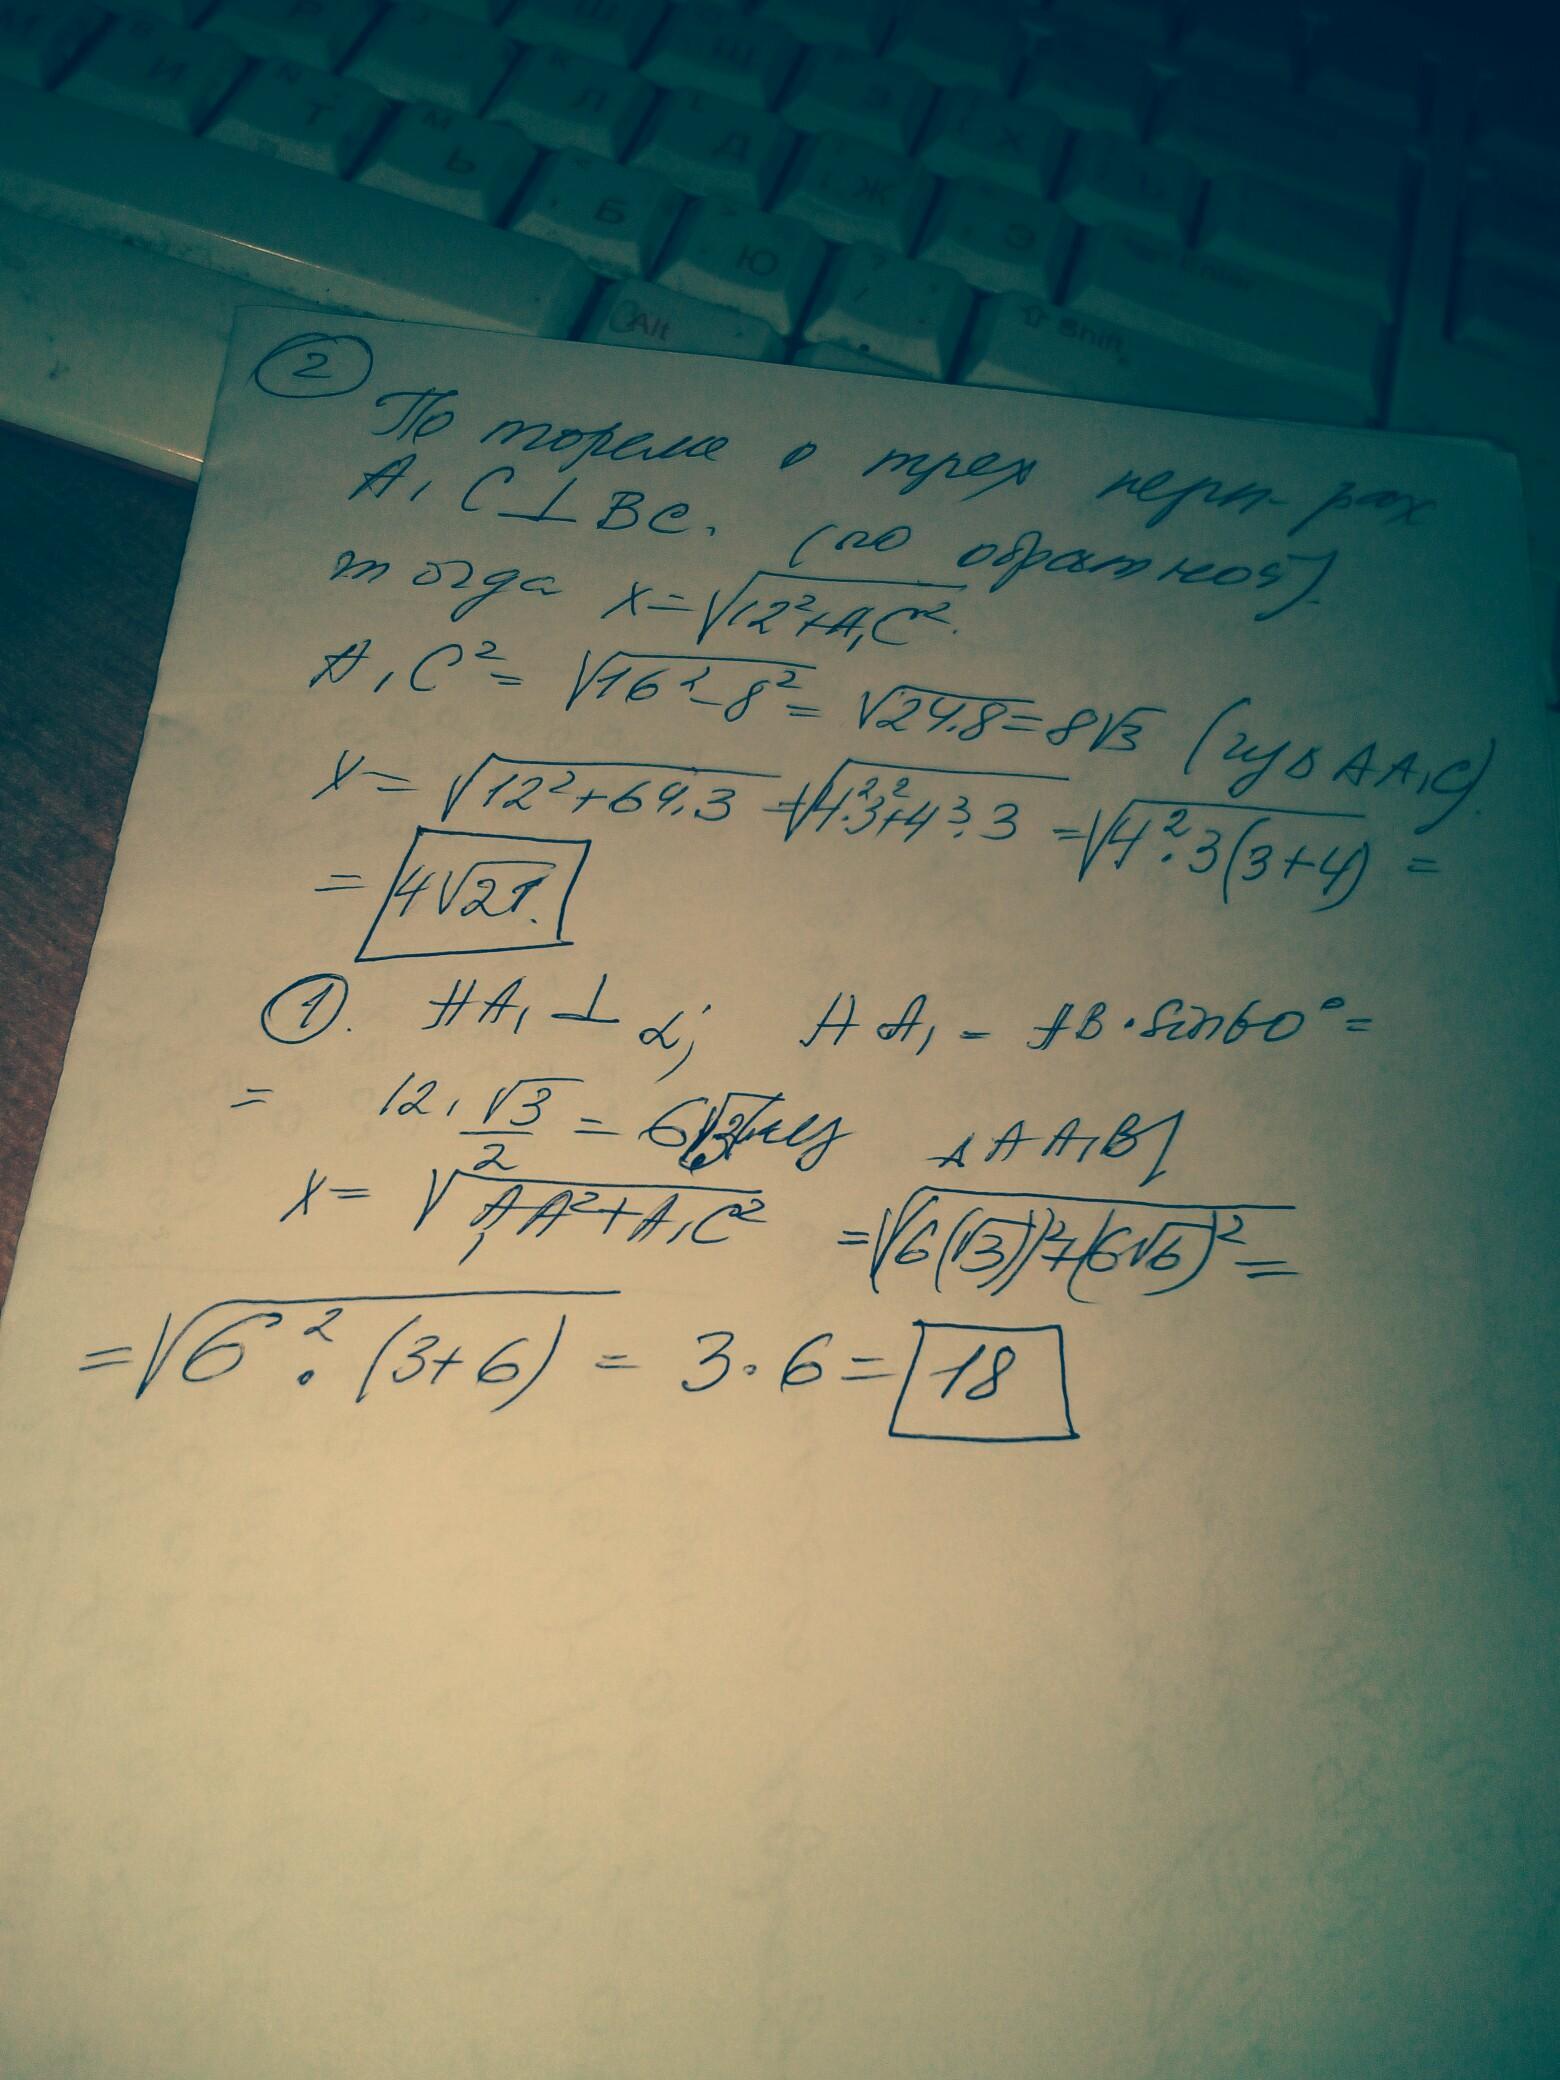 И
Т
Ь
Б
Ю
Л
Д
Ж
Э
Х
Ш
З
Р
Enter
Alt
Shift
2
По тореме о трех перп-рах
A₁C⊥BC. (по обратной).
тогда x=√(12²+A₁C²).
A₁C²=√(16²-8²)=√(24.8)=8√3 (из ΔAA₁C).
x=√(12²+64.3)=√(4².3²+4³.3)=√(4².3(3+4))=
=4√21.
1. AA₁⊥α; AA₁=AB·sin60°=
= 12.√3/2=6√3 [из ΔAA₁B]
x=√(A₁A²+A₁C²)=√((6(√3))²+(6√6)²)=
=√(6².(3+6))=3·6=18